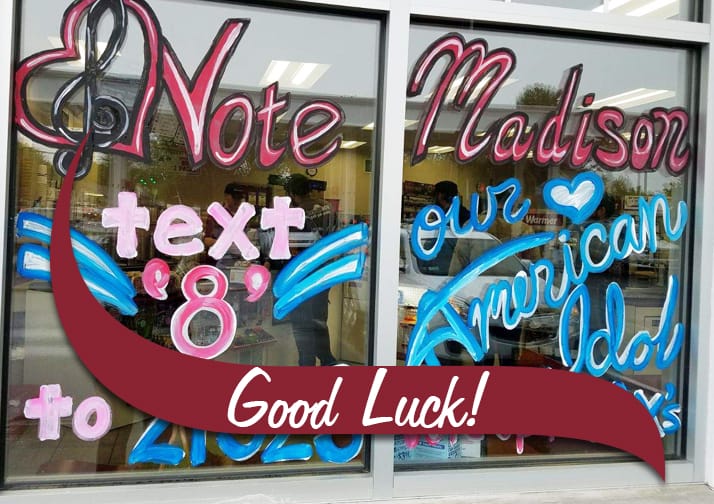 Note
text
'8'
to 21523
Madison
our
American
Idol
Warmer
Good Luck!